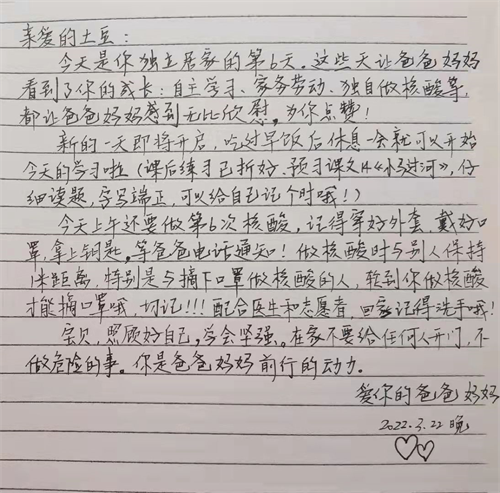 亲爱的土豆：
今天是你独立居家的第6天。这些天让爸爸妈妈
看到了你的成长：自主学习、家务劳动、独自做核酸等，
都让爸爸妈妈感到无比欣慰。为你点赞！
新的一天即将开启，吃过早饭后休息一会就可以开始
今天的学习啦（课后练习已折好、预习课文14《小马过河》，仔
细读题，字写端正，可以给自己记个时哦！）
今天上午还要做第6次核酸，记得穿好外套、戴好口
罩、拿上钥匙。等爸爸电话通知！做核酸时与别人保持
1米距离，特别是与摘下口罩做核酸的人，轮到你做核酸
才能摘口罩哦，切记!!! 配合医生和志愿者，回家记得洗手哦！
宝贝，照顾好自己，学会坚强。在家不要给任何人开门，不
做危险的事。你是爸爸妈妈前行的动力。
爱你的爸爸妈妈
2022.3.22 晚